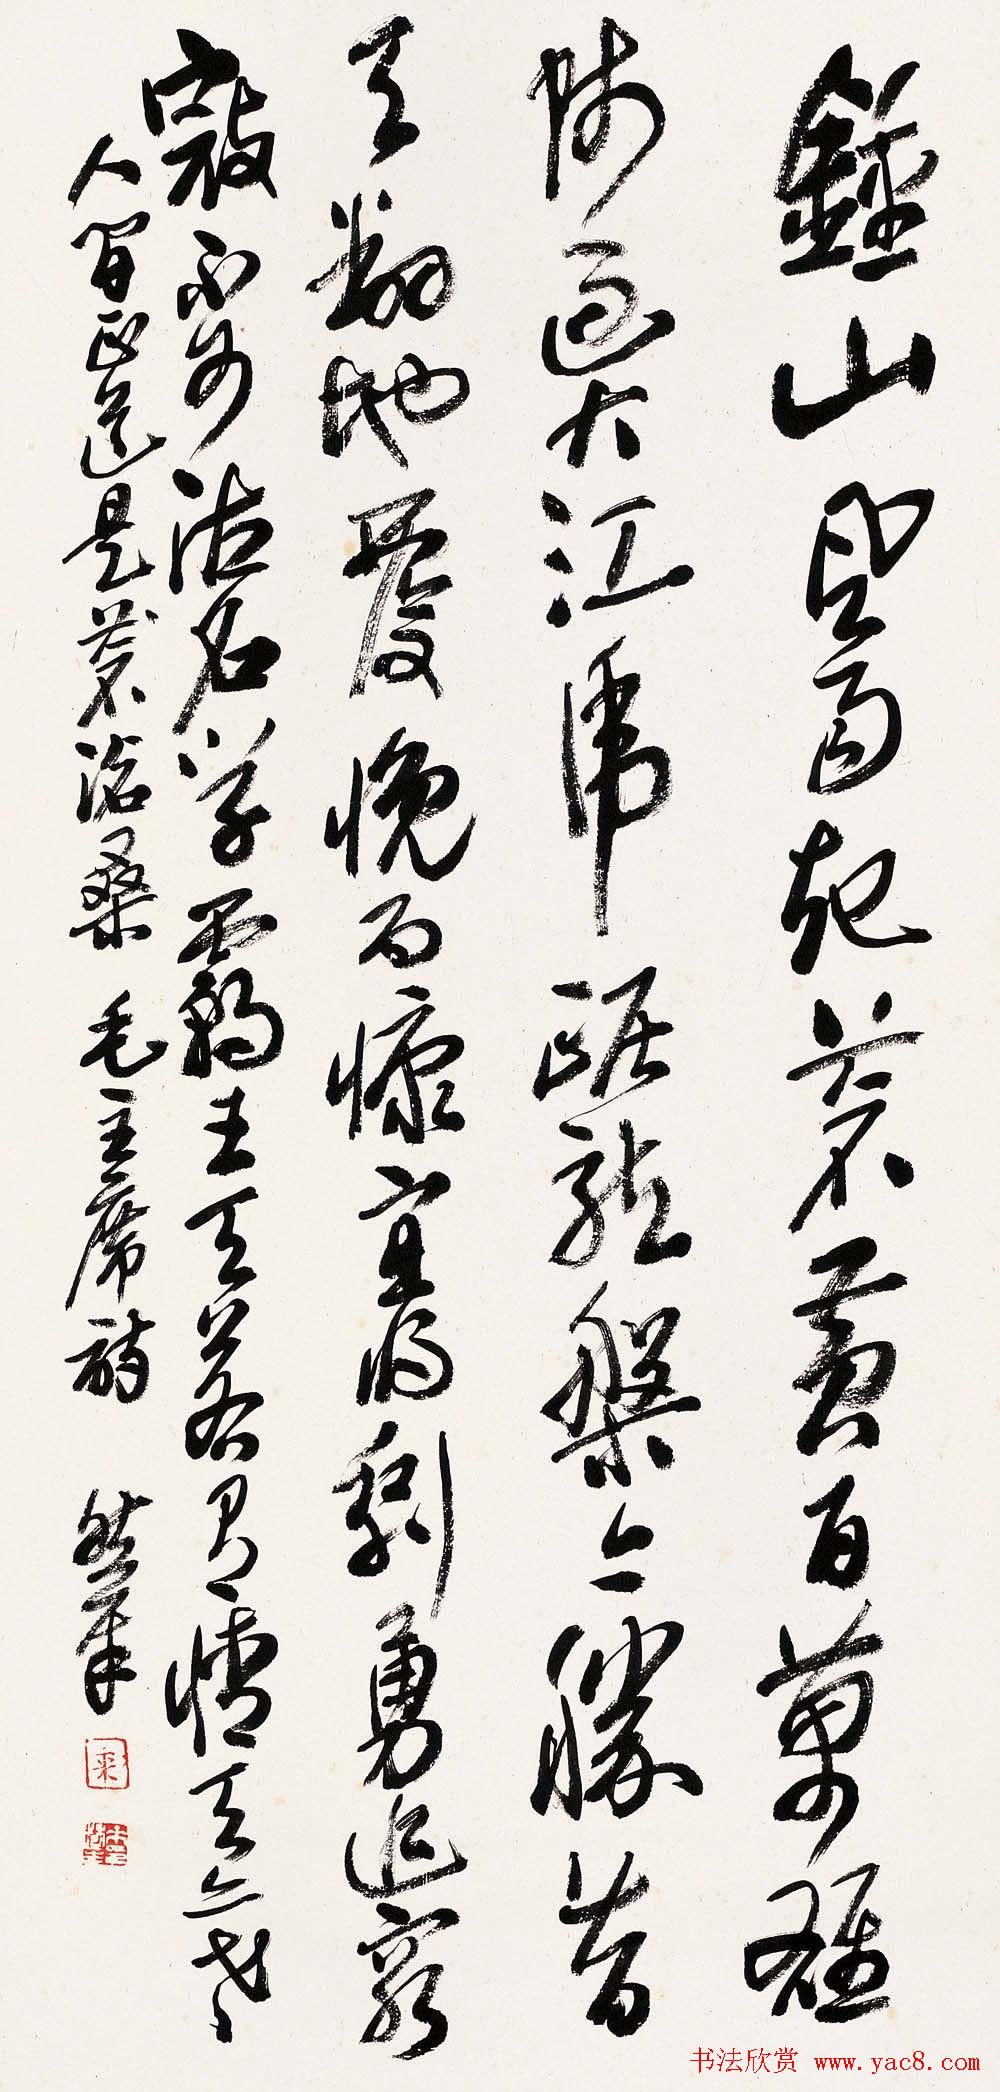 鍾山風雨起蒼黃百萬雄
師過大江虎踞龍盤今勝昔
天翻地覆慨而慷宜將剩勇追窮
寇不可沽名學霸王天若有情天亦老
人間正道是蒼滄桑 毛主席詩
书法欣赏 www.yac8.com